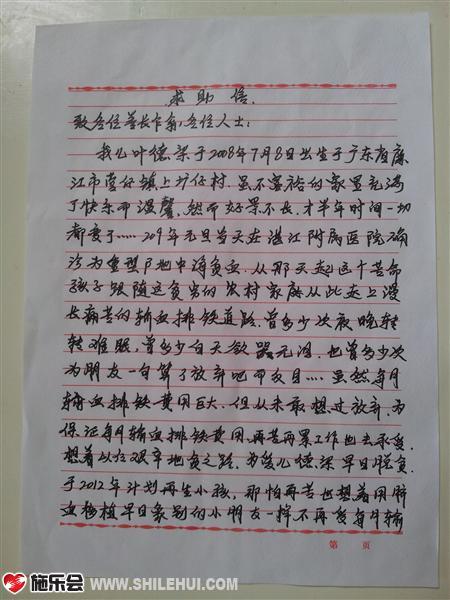 求助信
致各位善长仁翁,各位人士:
我儿叶德梁于2008年7月8日出生于广东省廉
江市营仔镇上圩仔村.虽不富裕的家里充满
了快乐和温馨.然而好景不长.才半年时间一切
都变了……209年元旦当天在湛江附属医院确
诊为重型β地中海贫血.从那天起这个苦命
孩子跟随这贫穷的农村家庭从此走上漫
长痛苦的输血排铁道路.曾多少次夜晚转
转难眠,曾多少白天欲哭无泪.也曾多少次
为朋友一句算了放弃吧而反目……虽然每月
输血排铁费用巨大.但从未敢想过放弃.为
保证每月输血排铁费用.再苦再累工作也去承受.
想着以后艰辛地贫之路.为爱儿德梁早日脱贫
于2012年计划再生小孩,那怕再苦也想着用脐
血移植早日象别的小朋友一样不再受每月输
第 页
施乐会 WWW.SHILEHUI.COM